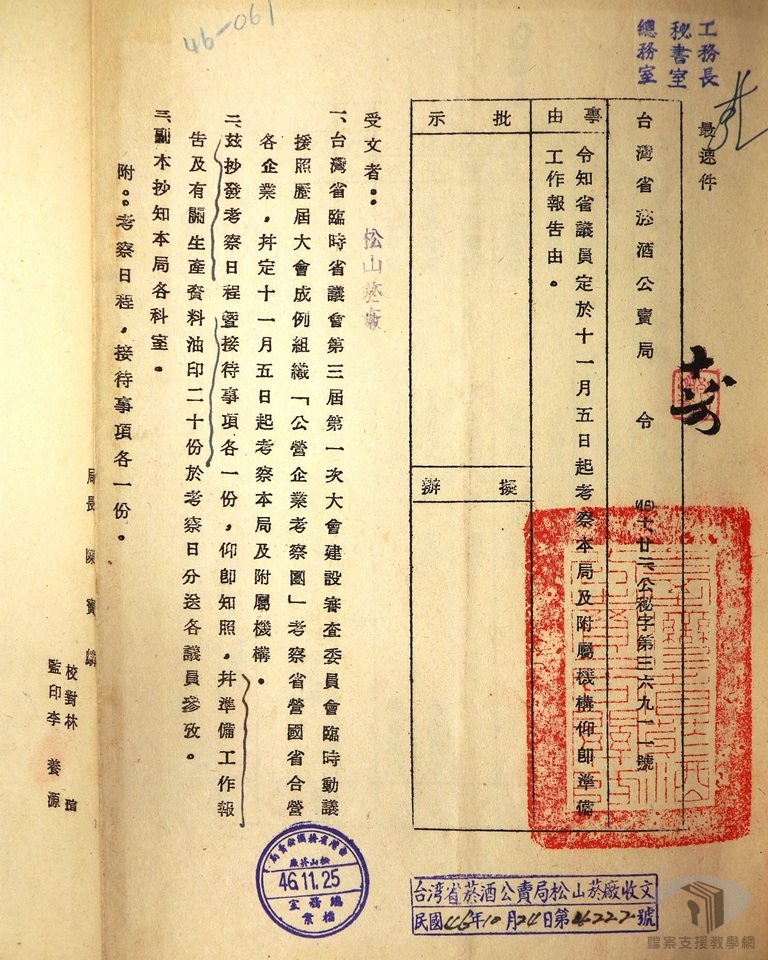 46-061
工務長
秘書室
總務室
最速件
台灣省菸酒公賣局 令
(46)十、廿二、公秘字第三六九一一號
事由
令知省議員定於十一月五日起考察本局及附屬機構仰即準備
工作報告由。
批示
擬辦
受文者：松山菸廠
一、台灣省臨時省議會第三屆第一次大會建設審查委員會臨時動議
援照歷屆大會成例組織「公營企業考察團」考察省營國省合營
各企業，并定十一月五日起考察本局及附屬機構。
二、茲抄發考察日程暨接待事項各一份，仰即知照，并準備工作報
告及有關生產資料油印二十份於考察日分送各議員參攷。
三、副本抄知本局各科室。
附：考察日程，接待事項各一份。
局長 陳寶
校對林瑄
監印李養源
松山菸廠
46.11.25
總務室
檔案
台灣省菸酒公賣局松山菸廠收文
民國46年10月24日第號
檔案支援教學網